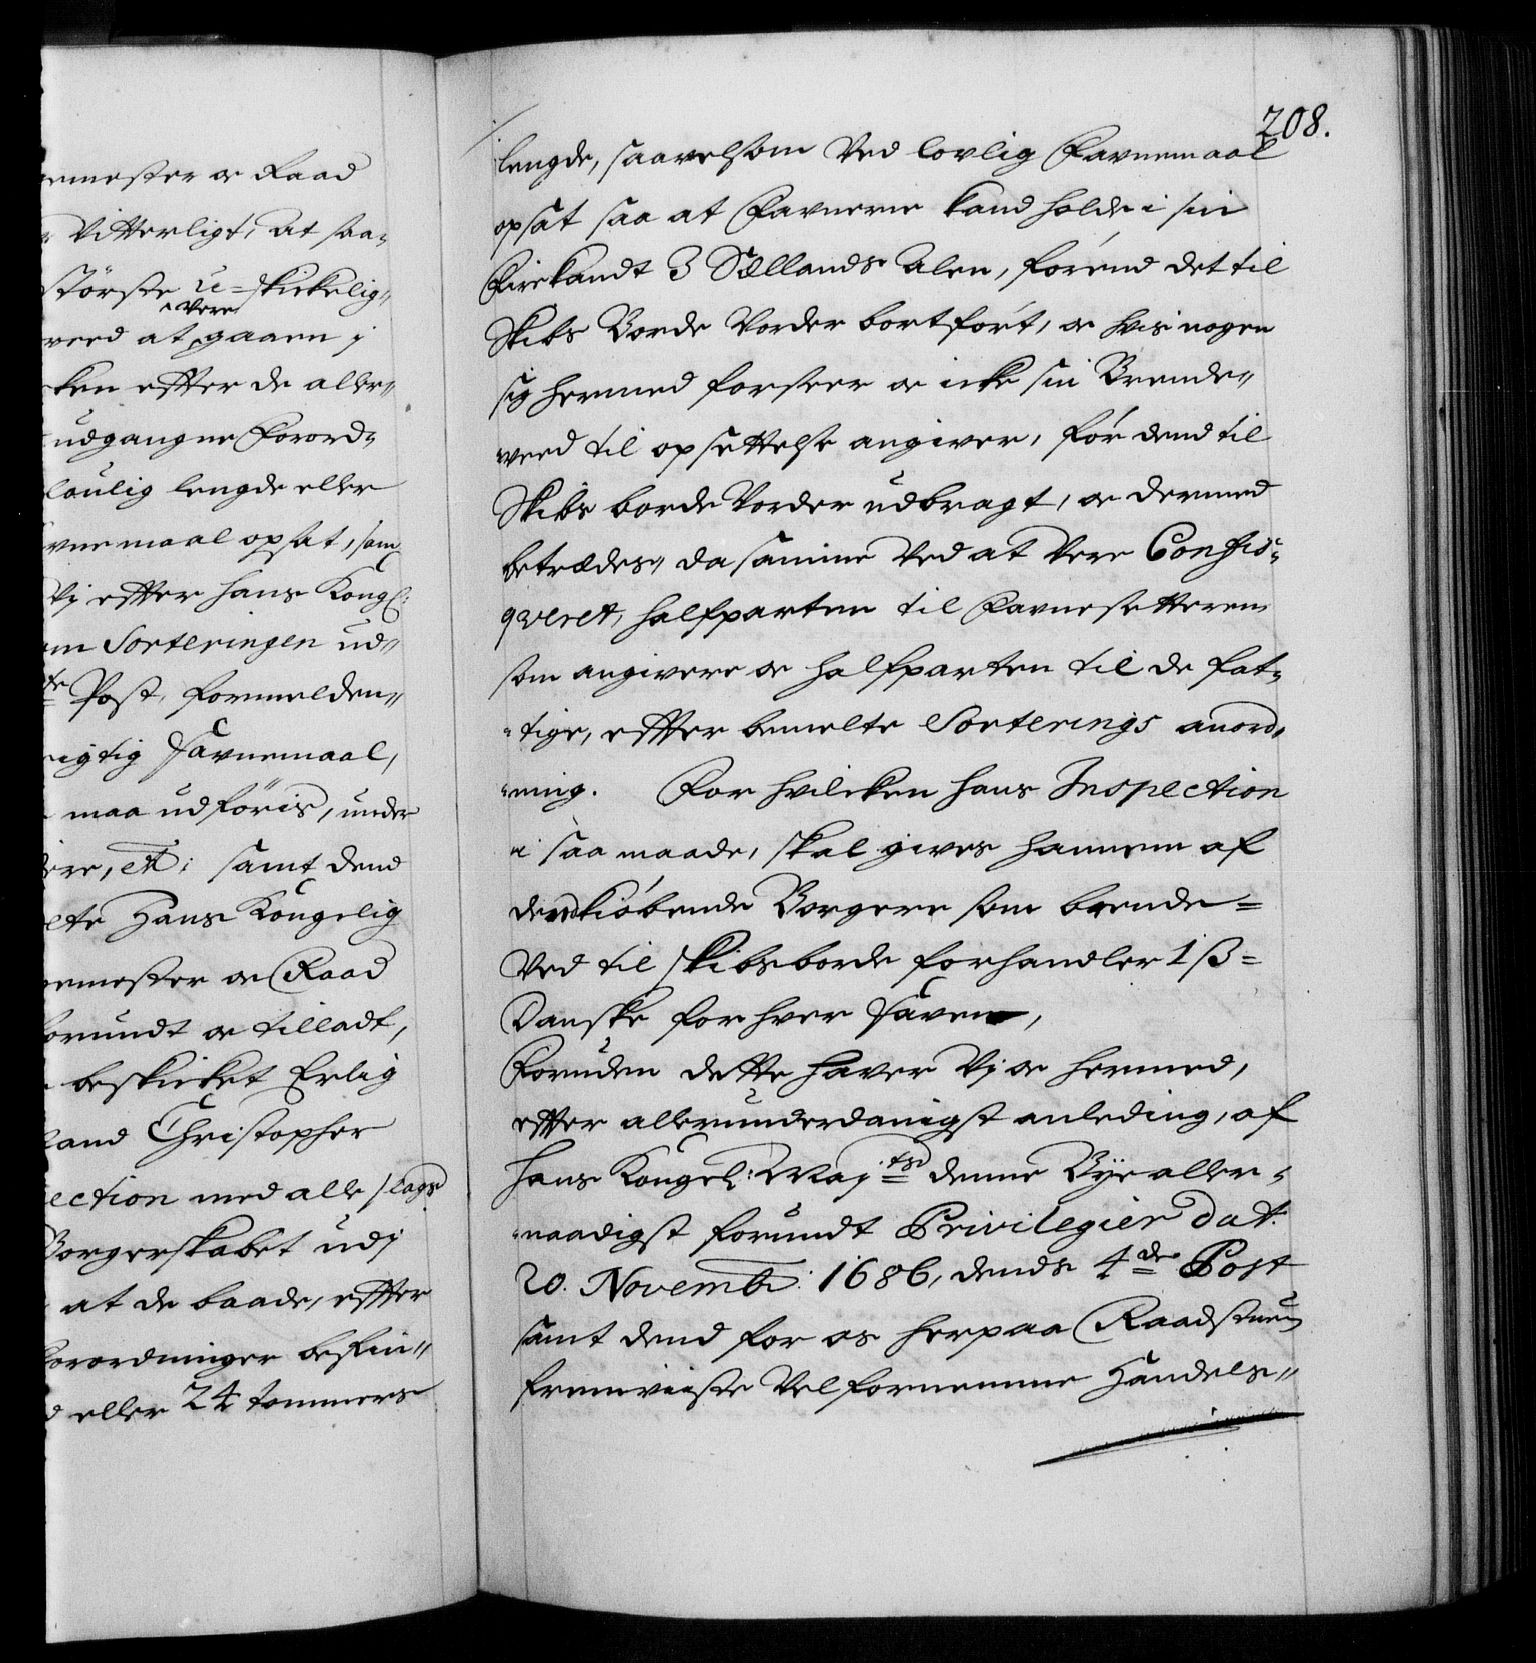 emester oc Raad
Vitterligt, at saa-
störste u-skickelig-
vere
veed at gaaen i
ken effter de aller-
udgangne Forord-
loulig lengde eller
vnemaal opsat, som
Vi effter hans Kongl:
om Sorteringen ud-
te Post, formelden-
rigtig Favnemaal,
maa udföris, under
ere, etc: samt dend
lte Hans Kongelig
emester oc Raad
forundt oc tilladt,
beskicket Erlig
land Christopher
ection med alle slags
Borgerskabet udj
at de baade, effter
forordninger befin-
d eller 24 tommers
208.
lengde, saavelsom Ved lovlig Favnemaal
opsat saa at Favnerne kand holde i sin
Firekandt 3 Sællands Alen, förend det til
Skibs Borde Vorder bortfört, oc hvis nogen
sig hermed forseer oc icke sin Brende-
veed til opsettelse angiver, för dend til
Skibs borde Vorder udbragt, oc dermed
betrædes, da samme Ved at Vere Confis-
qveret, halfparten til Favnesetteren
som angivere oc halfparten til de fat-
tige, effter bemelte Sorterings anord-
ning. For hvilcken hans Inspection
i saa maade, skal gives hannem af
den kiöbende Borgere som brende-
Ved til skibsborde forhandler 1 ß
Danske for hver Favn,
Foruden dette haver Vj oc hermed,
effter allerunderdanigst anleding, af
Hans Kongel: May:ts denne Bye aller-
naadigst forundt Privilegier dat:
20. Novemb: 1686, dends 4de Post
samt dend for os her paa Raadstuen
fremviiste Velfornemme Handels-